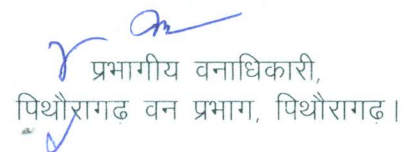 प्रभागीय वनाधिकारी,
पिथौरागढ़ वन प्रभाग, पिथौरागढ़।